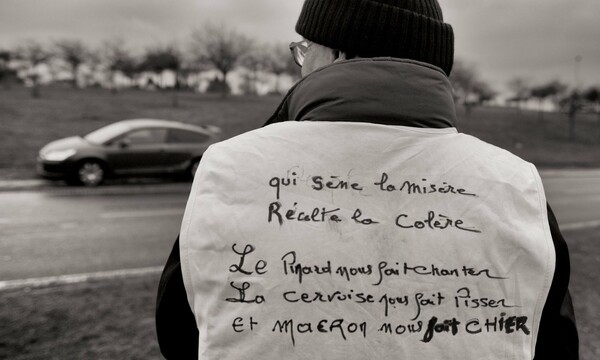 qui sème la misère
Récolte la Colère
Le Pinard nous fait chanter
La cervoise nous fait Pisser
Et MACRON nous fait CHIER